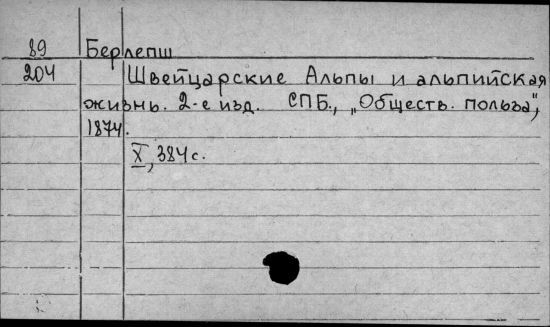 89 Берлепш
204 Швейцарские Альпы и альпийская
жизнь. 2-е изд. СПБ., „Обществ. польза",
1874.
X, 384 с.